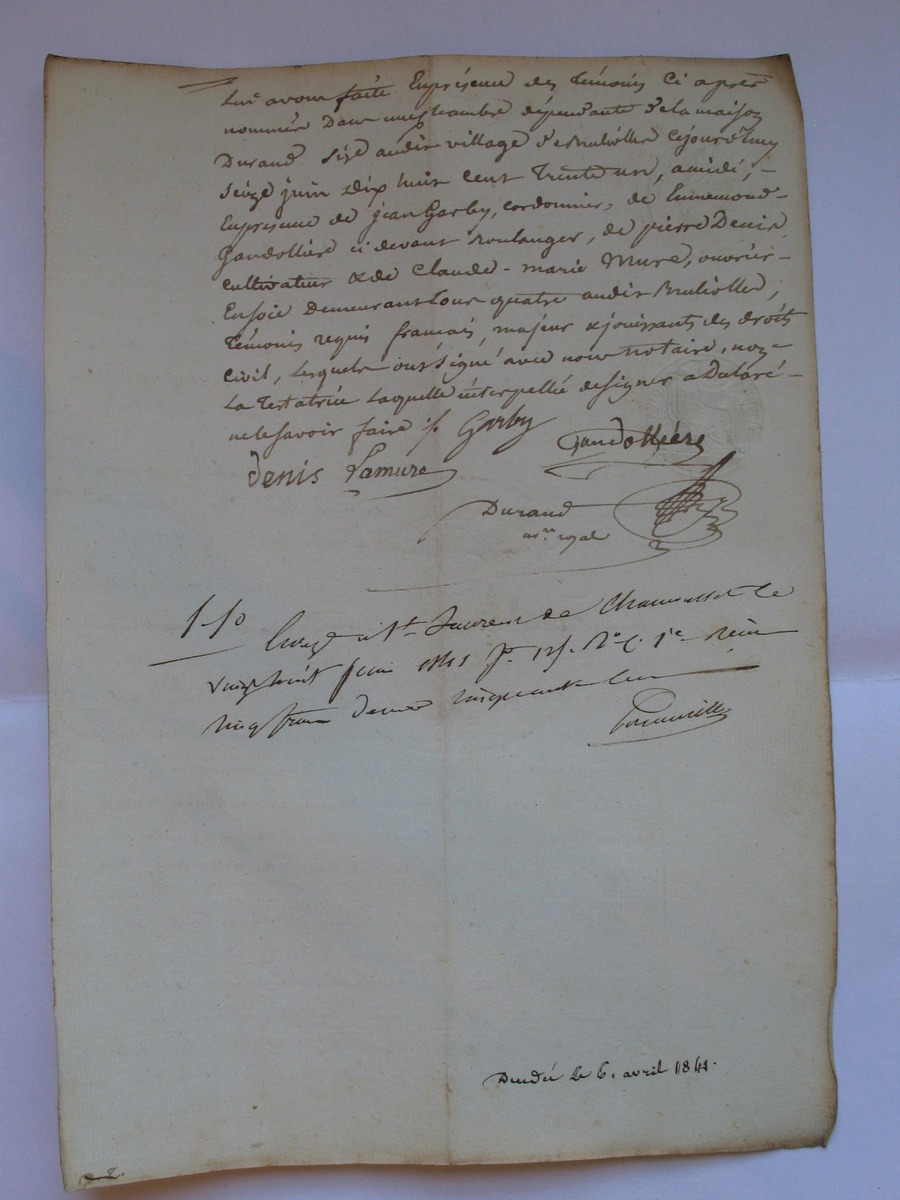 Lui avons faite Enprésence des témoins Ci après
nommés Dans une chambre dépendante de la maison
Durand Size audit village de Bruliolles Cejourd'huy
Seize juin dix huit cent Trente un, à midi, -
Enprésence de jean Garby, cordonnier, de Ennemond -
Gandollière ci devant Boulanger, de pierre Denis,
cultivateur & de Claude - marie Mure, ouvrier -
En soie Demeurant tous quatre audit Brulliolles,
témoins requis français, majeurs & jouissants des droits
Civil, Lesquels ont Signé avec nous notaire, non
La Testatrice Laquelle interpellée de signer a Déclaré -
ne le savoir faire ./. Garby
Gandollière
denis Lamure
Durand
no.re royal
5-50
à St Laurent de Chamousset le
vingt huit juin 1841 fo.
cinq francs décime cinquante
Décédée le 6. avril 1841.
2.